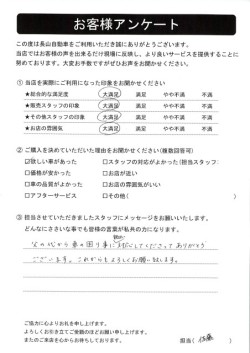 お客様アンケート
この度は長山自動車をご利用いただき誠にありがとうございます。
当店ではお客様の声を出来るだけ現場に反映し、より良いサービスを提供することに
努めております。大変お手数ですがぜひお声をお聞かせください。
① 当店を実際にご利用になった印象をお聞かせください
★総合的な満足度 大満足 満足 やや不満 不満
★販売スタッフの印象 大満足 満足 やや不満 不満
★その他スタッフの印象 大満足 満足 やや不満 不満
★お店の雰囲気 大満足 満足 やや不満 不満
② ご購入を決めていただいた理由をお聞かせください(複数回答可)
☑欲しい車があった □スタッフの対応がよかった(担当スタッフ:
□価格が安かった □お店が近い
□車の品質がよかった □お店の雰囲気がいい
□アフターサービス ☑その他(
③ 担当させていただきましたスタッフにメッセージをお願いいたします。
どんなにささいな事でも皆様の言葉が私共の力になります。
父の代から車の困り事に対応してくださってありがとう
ございます。これからもよろしくお願い致します。
ご協力に心よりお礼を申し上げます。
よろしくお引き立てご愛顧のほどお願い申し上げます。
またのご来店を心からお待ちしております。
担当( 佐藤 )